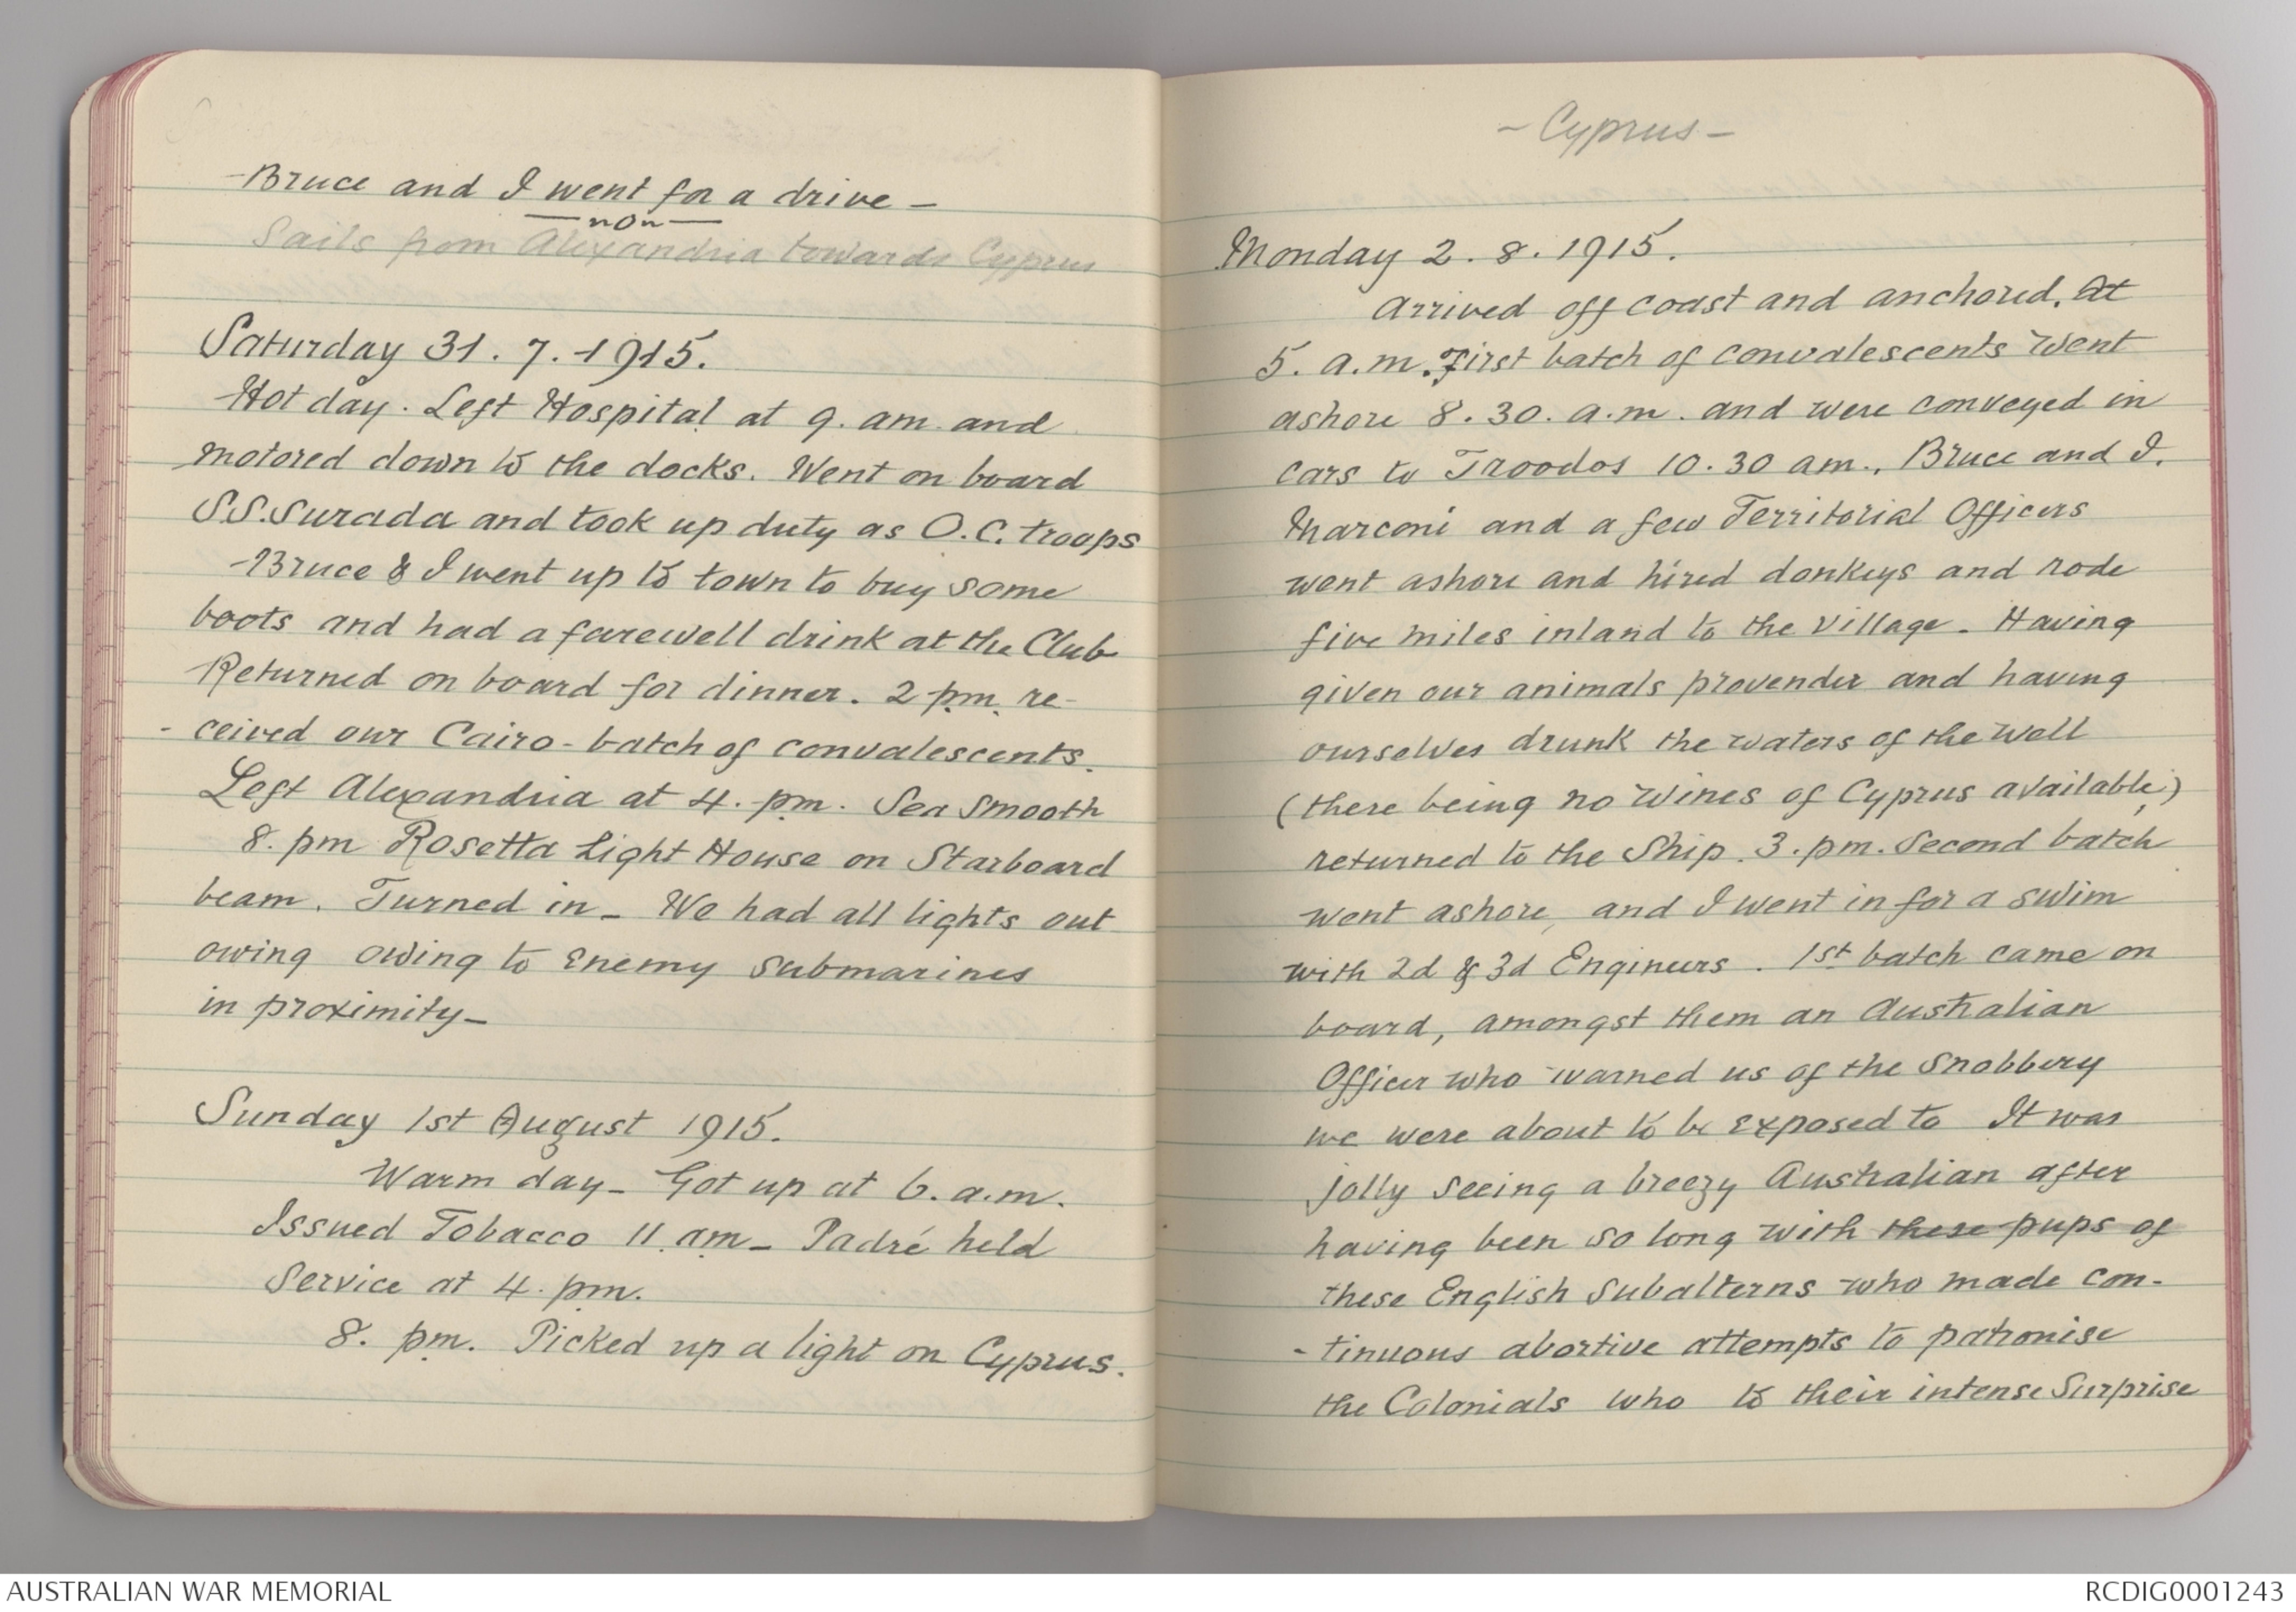 Bruce and I went for a drive –
— non —
Sails from Alexandria towards Cyprus
Saturday 31. 7. 1915.
Hot day. Left Hospital at 9. am. and
motored down to the docks. Went on board
S.S. Surada and took up duty as O.C. troops
Bruce & I went up to town to buy some
boots and had a farewell drink at the Club
Returned on board for dinner. 2 pm. re-
- ceived our Cairo-batch of convalescents.
Left Alexandria at 4. pm. Sea smooth
8. pm Rosetta Light House on Starboard
beam. Turned in – We had all lights out
owing owing to Enemy submarines
in proximity –
Sunday 1st August 1915.
Warm day – Got up at 6. a.m.
Issued Tobacco 11 am – Padré held
Service at 4. pm.
8. pm. Picked up a light on Cyprus.
– Cyprus –
Monday 2. 8. 1915.
Arrived off coast and anchored. At
5. a.m. First batch of convalescents went
ashore 8. 30. a.m. and were conveyed in
cars to Troodos 10. 30 am., Bruce and I.
Marconi and a few Territorial Officers
went ashore and hired donkeys and rode
five miles inland to the village. Having
given our animals provender and having
ourselves drunk the waters of the well
(there being no wines of Cyprus available,)
returned to the Ship. 3. pm. Second batch
went ashore, and I went in for a swim
with 2d & 3d Engineers. 1st batch came on
board, amongst them an Australian
Officer who warned us of the snobbery
we were about to be exposed to It was
jolly seeing a breezy Australian after
having been so long with these pups of
these English subalterns who made con-
- tinuous abortive attempts to patronise
the Colonials who to their intense surprise
AUSTRALIAN WAR MEMORIAL
RCDIG0001243